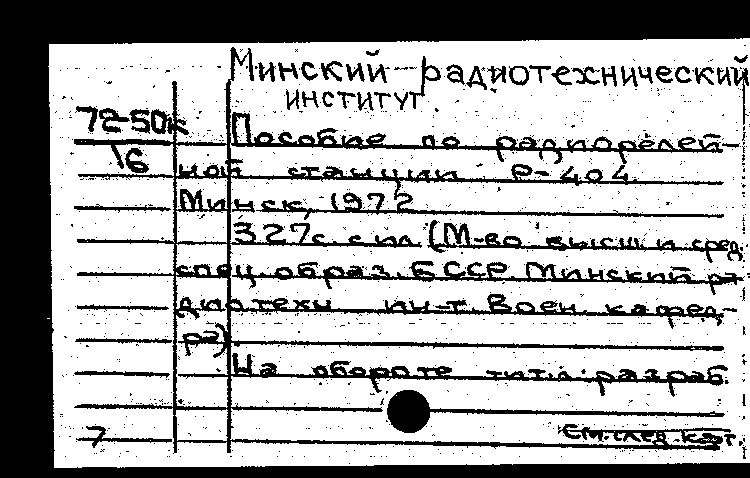 Минский радиотехнический
институт
72-50к
16
Пособие по радиорелей-
ной станции Р-404.
Минск, 1972
327с. с ил. (М-во высш и сред.
спец. образ. БССР. Минский ра-
диотехн ин-т. Воен. кафед-
ра).
На обороте тит.л: разраб.
7
См. след. карт.